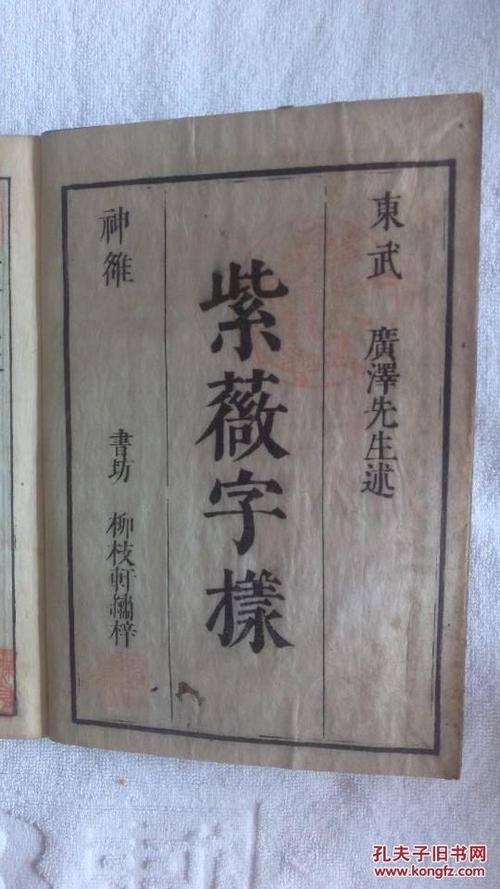 東武 廣澤先生述
紫薇字樣
神雒 書坊 柳枝軒繡梓
孔夫子旧书网
www.kongfz.com